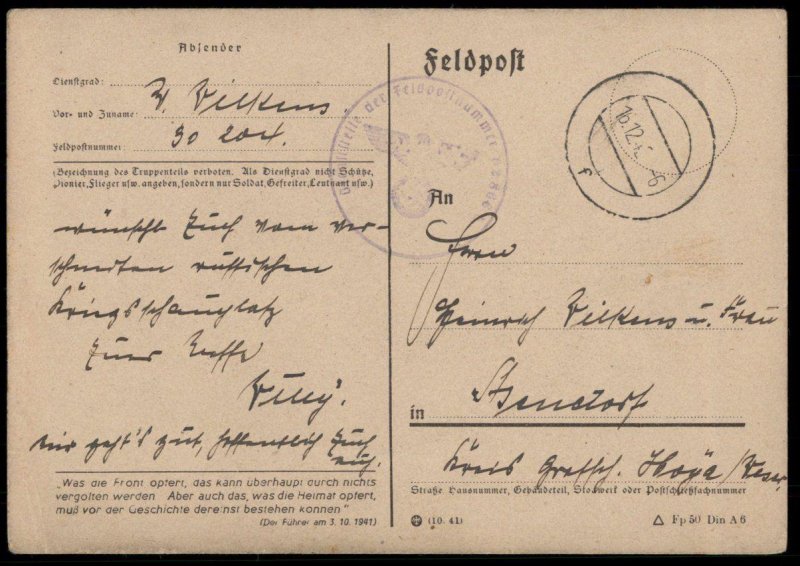 Absender
Dienstgrad:
Vor- und Zuname: W. Vilkens
Feldpostnummer: 30 204.
(Bezeichnung des Truppenteils verboten. Als Dienstgrad nicht Schütze,
Pionier, Flieger usw. angeben, sondern nur Soldat, Gefreiter, Leutnant usw.)
wünscht Euch vom ver-
schneiten russischen
Kriegsschauplatz
Euer Neffe
Willy.
Mir geht's gut, hoffentlich Euch
auch.
„Was die Front opfert, das kann überhaupt durch nichts
vergolten werden Aber auch das, was die Heimat opfert,
muß vor der Geschichte dereinst bestehen können“
(Der Führer am 3. 10. 1941)
Feldpost
der Feldpostnummer
16.12.42
An
Herrn
Heinrich Vilkens u. Frau
in
Kreis Grafsch. Hoya / Weser
Straße, Hausnummer, Gebäudeteil, Stockwerk oder Postschließfachnummer
(10. 41)
Fp 50 Din A 6